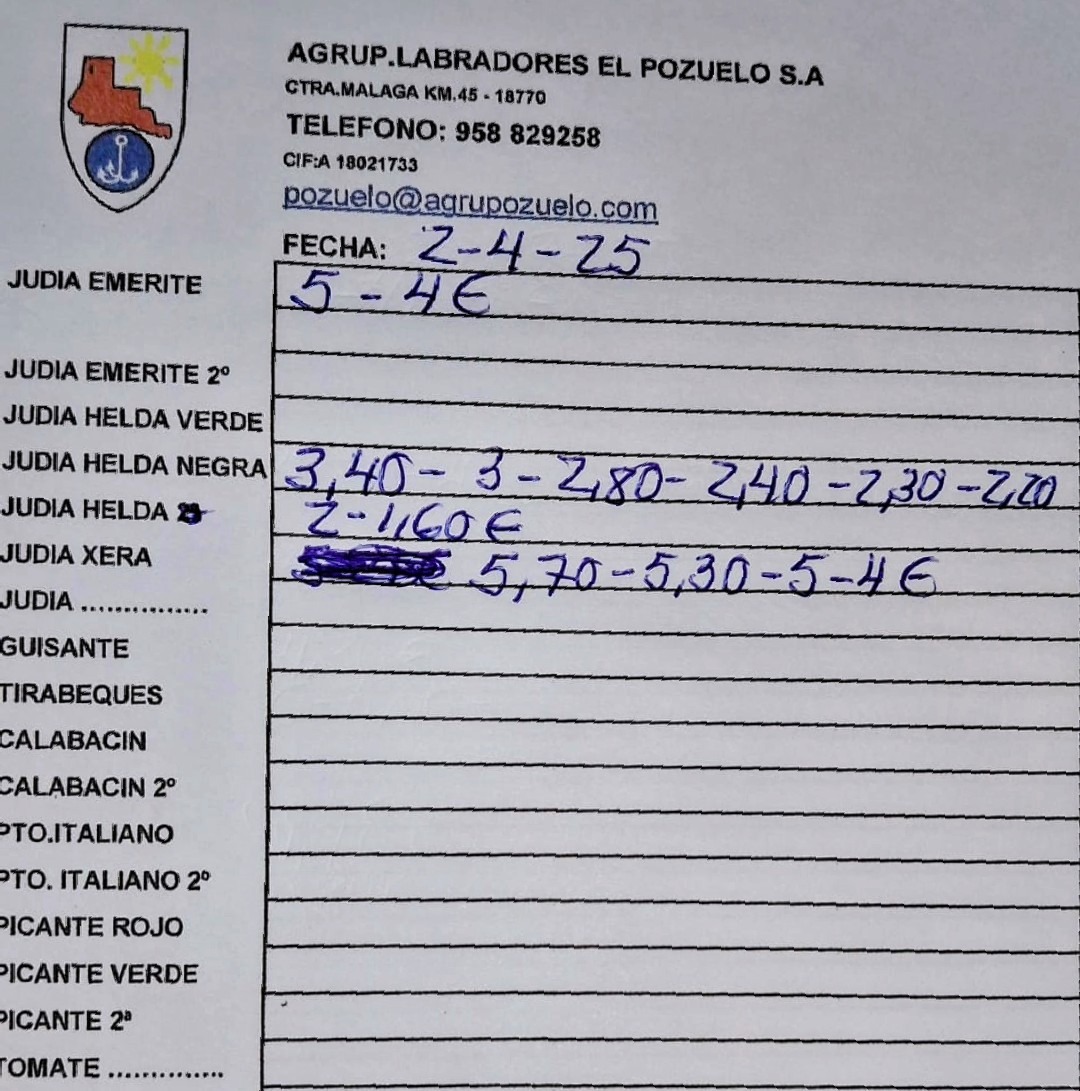 AGRUP.LABRADORES EL POZUELO S.A
CTRA.MALAGA KM.45 - 18770
TELEFONO: 958 829258
CIF:A 18021733
pozuelo@agrupozuelo.com
FECHA: 2-4-25
JUDIA EMERITE 5 - 4€
JUDIA EMERITE 2º
JUDIA HELDA VERDE
JUDIA HELDA NEGRA 3,40 - 3 - 2,80 - 2,40 - 2,30 - 2,20
JUDIA HELDA 2 - 1,60€
JUDIA XERA 5,70 - 5,30 - 5 - 4€
JUDIA ...............
GUISANTE
TIRABEQUES
CALABACIN
CALABACIN 2º
PTO.ITALIANO
PTO. ITALIANO 2º
PICANTE ROJO
PICANTE VERDE
PICANTE 2ª
TOMATE ..............